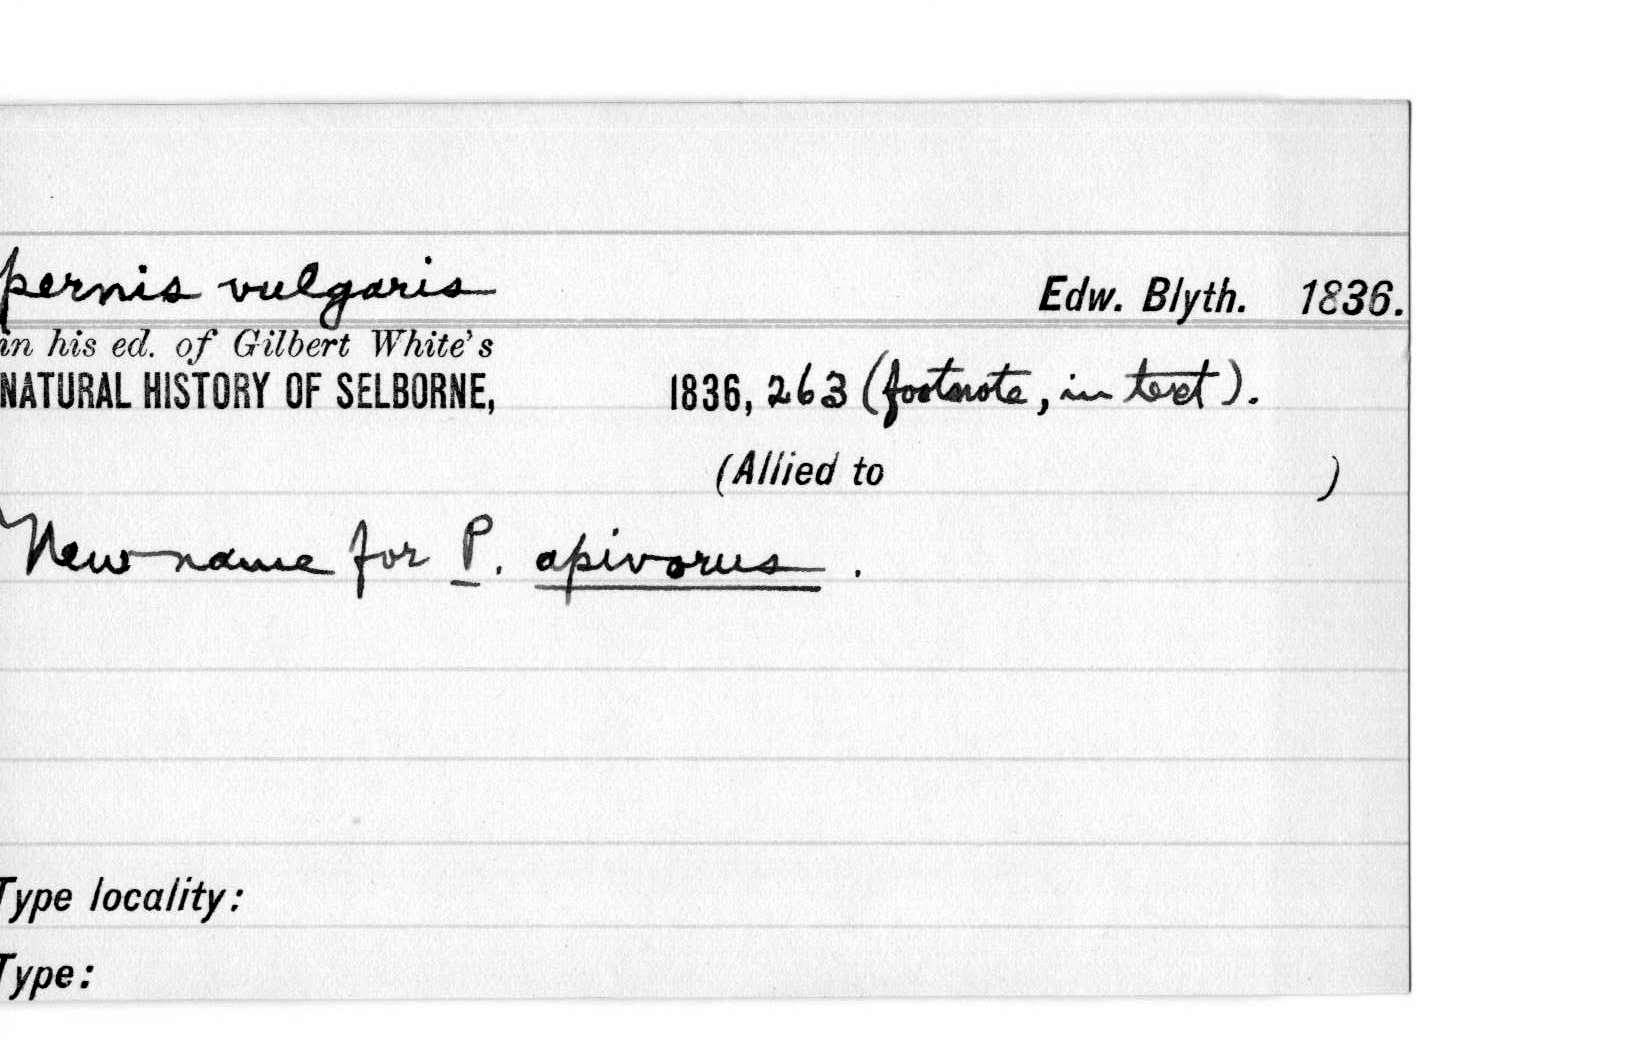 pernis vulgaris Edw. Blyth. 1836.
in his ed. of Gilbert White's
NATURAL HISTORY OF SELBORNE, 1836, 263 (footnote, in text).
(Allied to )
New name for P. apivorus.
Type locality:
Type: